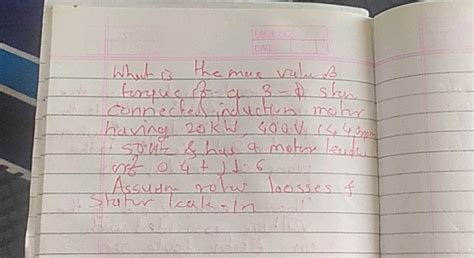 PAGE NO.
DATE
What is the max value of
torque of a 3-ϕ star
connected induction motor
having 20kW, 400V, 1440rpm
50Hz & has a motor
of 0.4 + j1.6
Assume losses &
stator